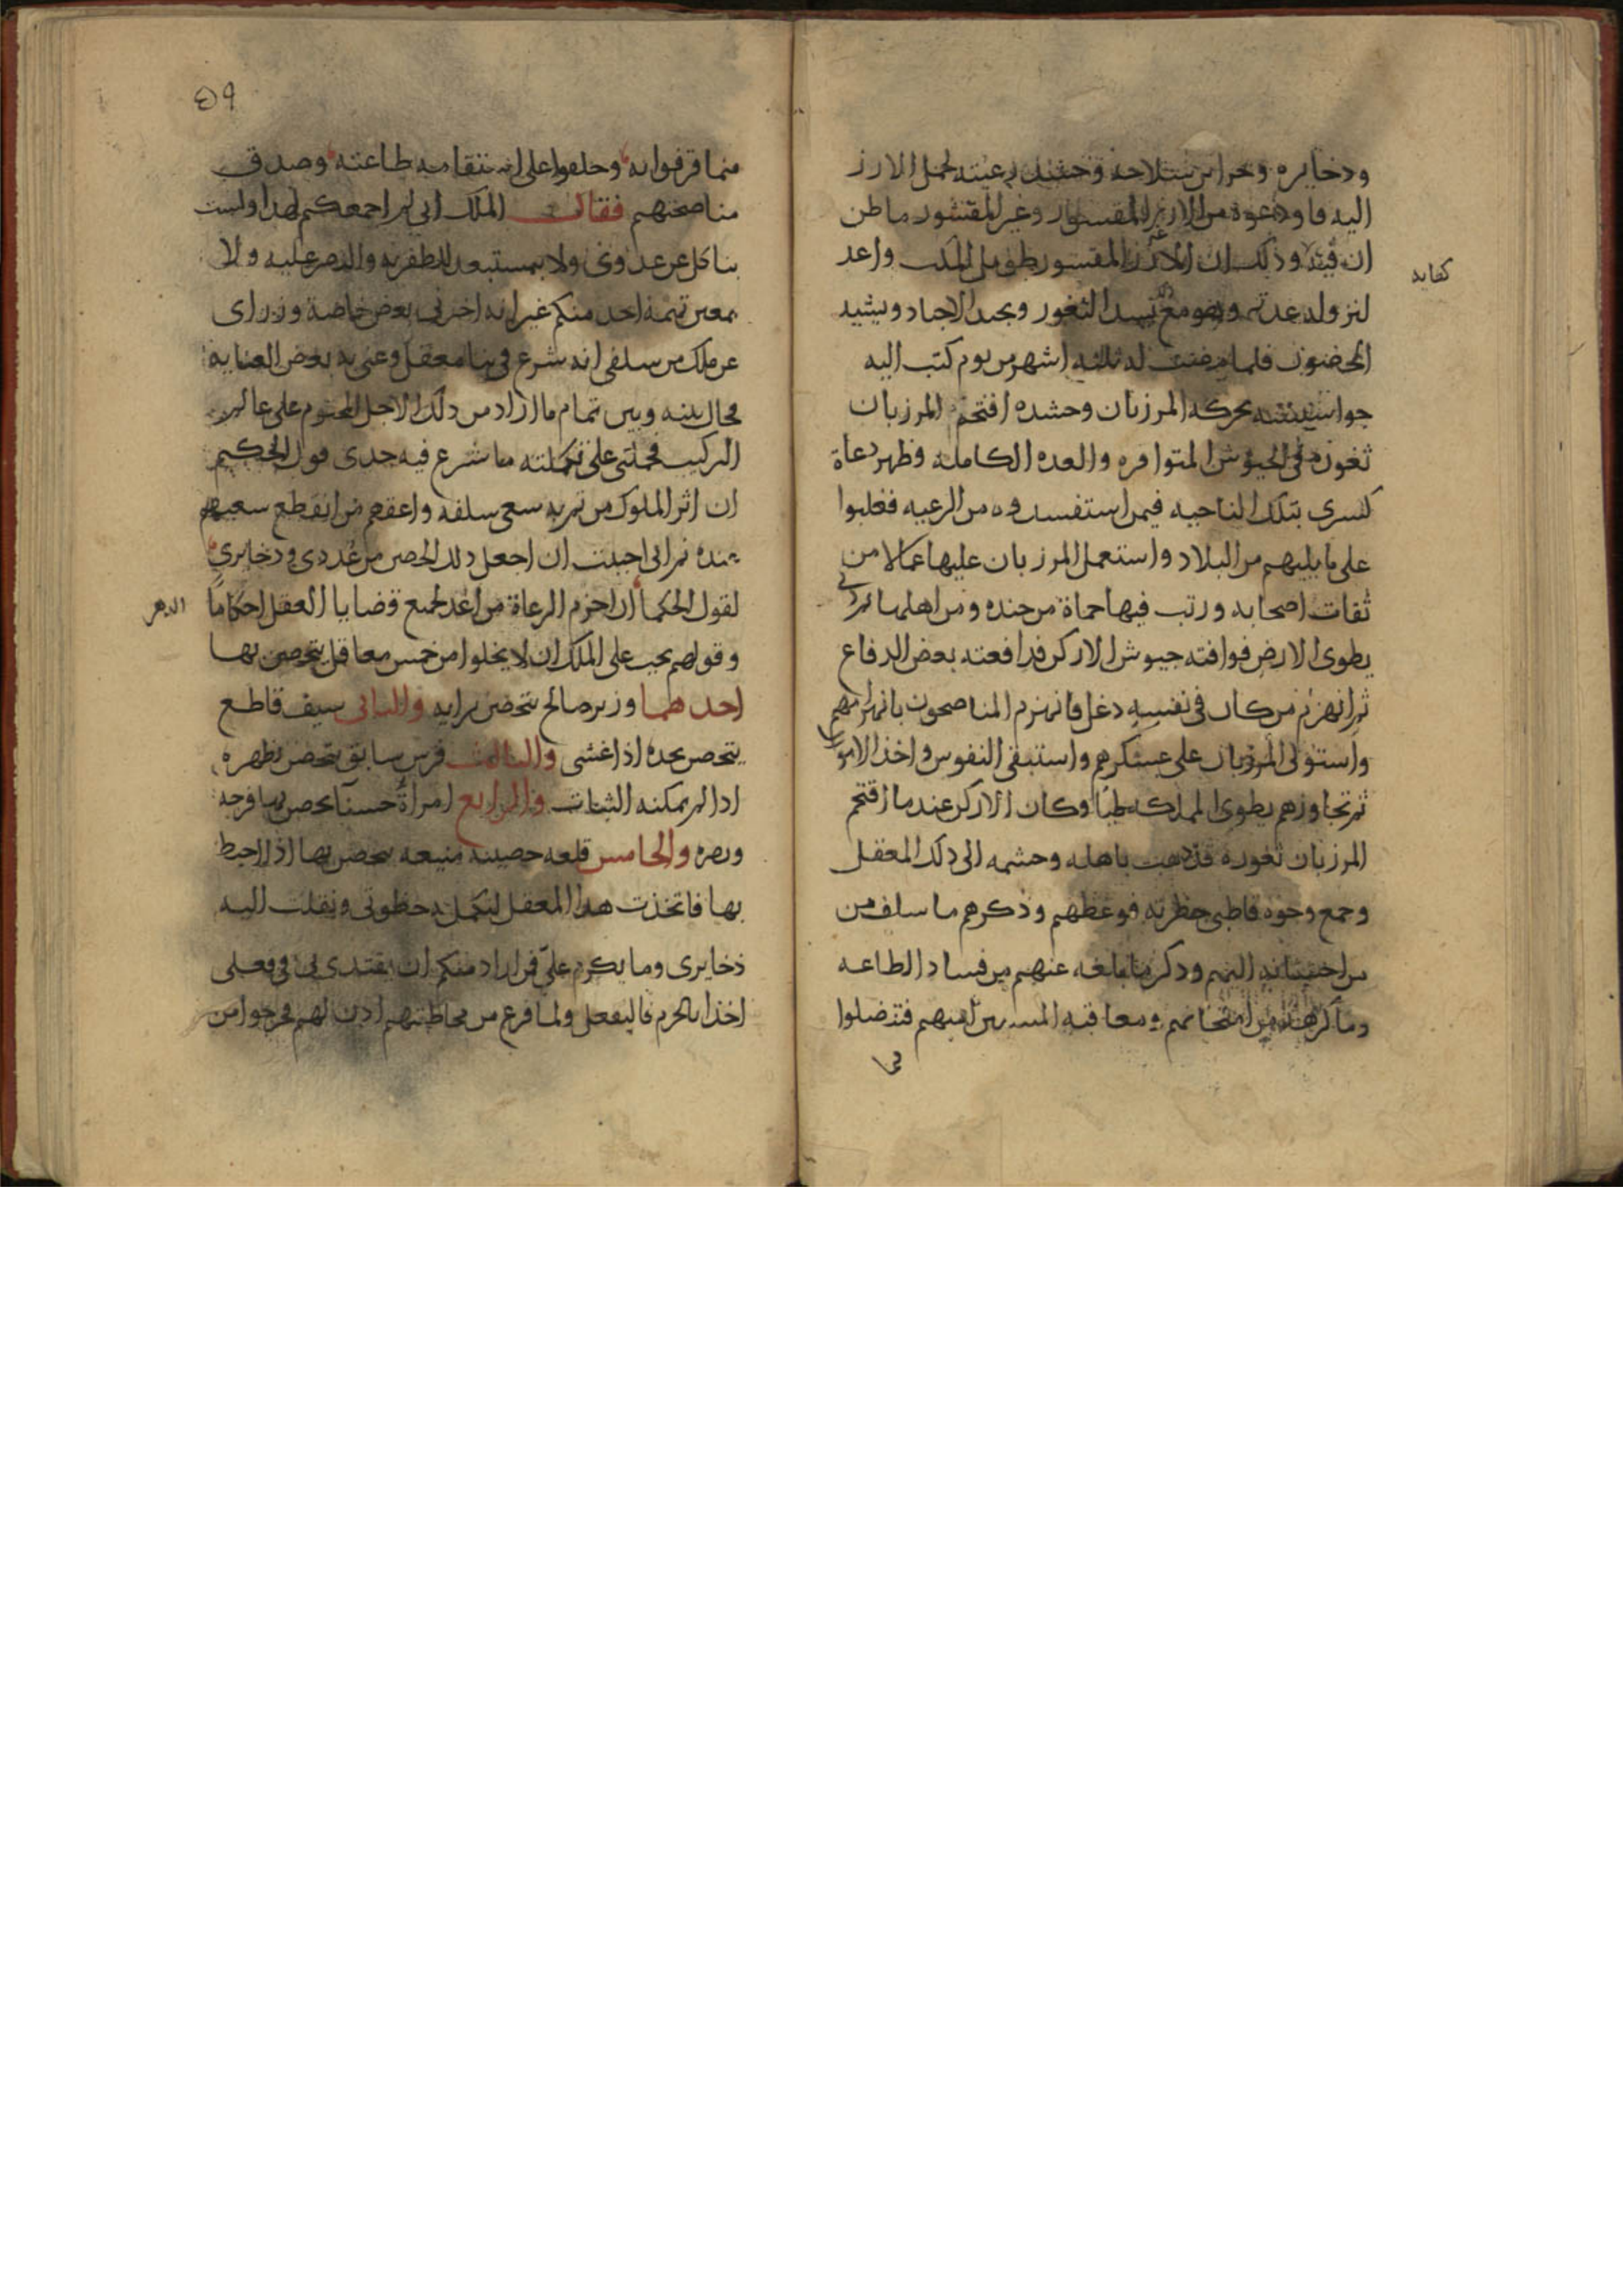 ودخايره وخزاين سلاحه وحشد رعيته لحمل الارز
اليه فاودعوه من الارز المقسور وغير المقشور ما ظن
ان فيه وذلك ان الارز غير المقسور طويل المكث واعد
كفايه
لنزوله عدته وهو مع ذلك يسد الثغور ويجند الاجناد ويشيد
الحصون فلما مضت له ثلثه اشهر من يوم كتب اليه
جواسيسه بحركه المرزبان وحشده افتحم المرزبان
ثغوره في الجيوش المتوافره والعده الكامله وظهر دعاة
كسرى بتلك الناحيه فيمن استفسدوه من الرعيه فغلبوا
على ما يليهم من البلاد واستعمل المرزبان عليها عمالا من
ثقات اصحابه ورتب فيها حماة من جنده ومن اهلها
يطوى الارض فوافته جيوش الاركن فدافعته بعض الدفاع
ثم انهزم من كان في نفسه دغل فانهزم المناصحون بانهزامهم
واستولى المرزبان على عسكرهم واستبقى النفوس واخذ الاموال
ثم تجاوزهم يطوى المملكه طيا وكان الاركن عند ما اقتحم
المرزبان ثغوره قد ذهب باهله وحشمه الى ذلك المعقل
وجمع وجوه قاطنى حظرته فوعظهم وذكرهم ما سلف من
من احسانه اليهم وذكر ما بلغه عنهم من فساد الطاعه
وما كرهه من امتحانهم ومعاقبه المسيين منهم فتنصلوا
مما
٥٩
مما قرفوا به وحلفوا على استقامه طاعته وصدق
مناصحتهم فقال الملك انى لم اجمعكم لهذا ولست
بناكل عن عدوى ولا بمستبعد للظفر به والنصر عليه ولا
بمعير تهمة احد منكم غير انه اخبرنى بعض خاصة وزراى
عن ملك من سلفى انه شرع في بنا معقل وعنى به بعض العنايه
فحال بينه وبين تمام ما اراد من ذلك الاجل المحتوم على عالم
التركيب فحملنى على تكملته ما شرع فيه جدى قول الحكيم
ان اثر الملوك من تم به سعى سلفه واعقهم من انقطع سعيهم
عنده ثم انى احببت ان اجعل ذلك الحصن من عددى ودخايرى
لقول الحكما ان احزم الرعاة من اعد لجميع قضايا العقل احكاما
الدهر
وقولهم يجب على الملك ان لا يخلوا من خمس معاقل يتحصن بها
احدهما وزير صالح يتحصن برايه والثانى سيف قاطع
يتحصن بحده اذا غشى والثالث فرس سابق يتحصن بظهره
اذا لم يمكنه الثبات والرابع امراة حسنا يحصن بها فرجه
وبصره والخامس قلعه حصينه منيعه يتحصن بها اذا احيط
بها فاتخذت هذا المعقل لتكمل به حظوتى ونقلت اليه
ذخايرى وما يكرم علىّ فمن اراد منكم ان يقتدى بى في فعلى
اخذا بالحزم فاليفعل ولما فرغ من مخاطبتهم اذن لهم فخرجوا من